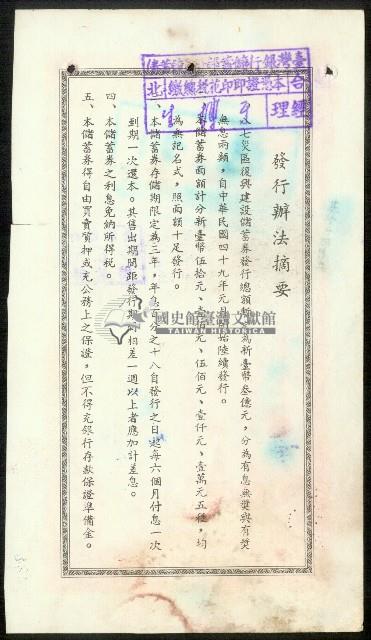 臺灣銀行
本憑證印花稅總繳
台北
經理
發行辦法摘要
七災區復興建設儲蓄券發行總額
為新臺幣叁億元，分為有息無獎與有獎
無息兩類，自中華民國四十九年元
始陸續發行。
儲蓄券面額計分新臺幣伍拾元、
佰元、伍佰元、壹仟元、壹萬元五種，均
為無記名式，照面額十足發行。
本儲蓄券存儲期限定為三年，年息百分之十八自發行之日起每六個月付息一次
到期一次還本。其售出期間距發行期
相差一週以上者應加計差息。
四、本儲蓄券之利息免納所得稅。
五、本儲蓄券得自由買賣質押或充公務上之保證，但不得充銀行存款保證準備金。
國史館臺灣文獻館
TAIWAN HISTORICA